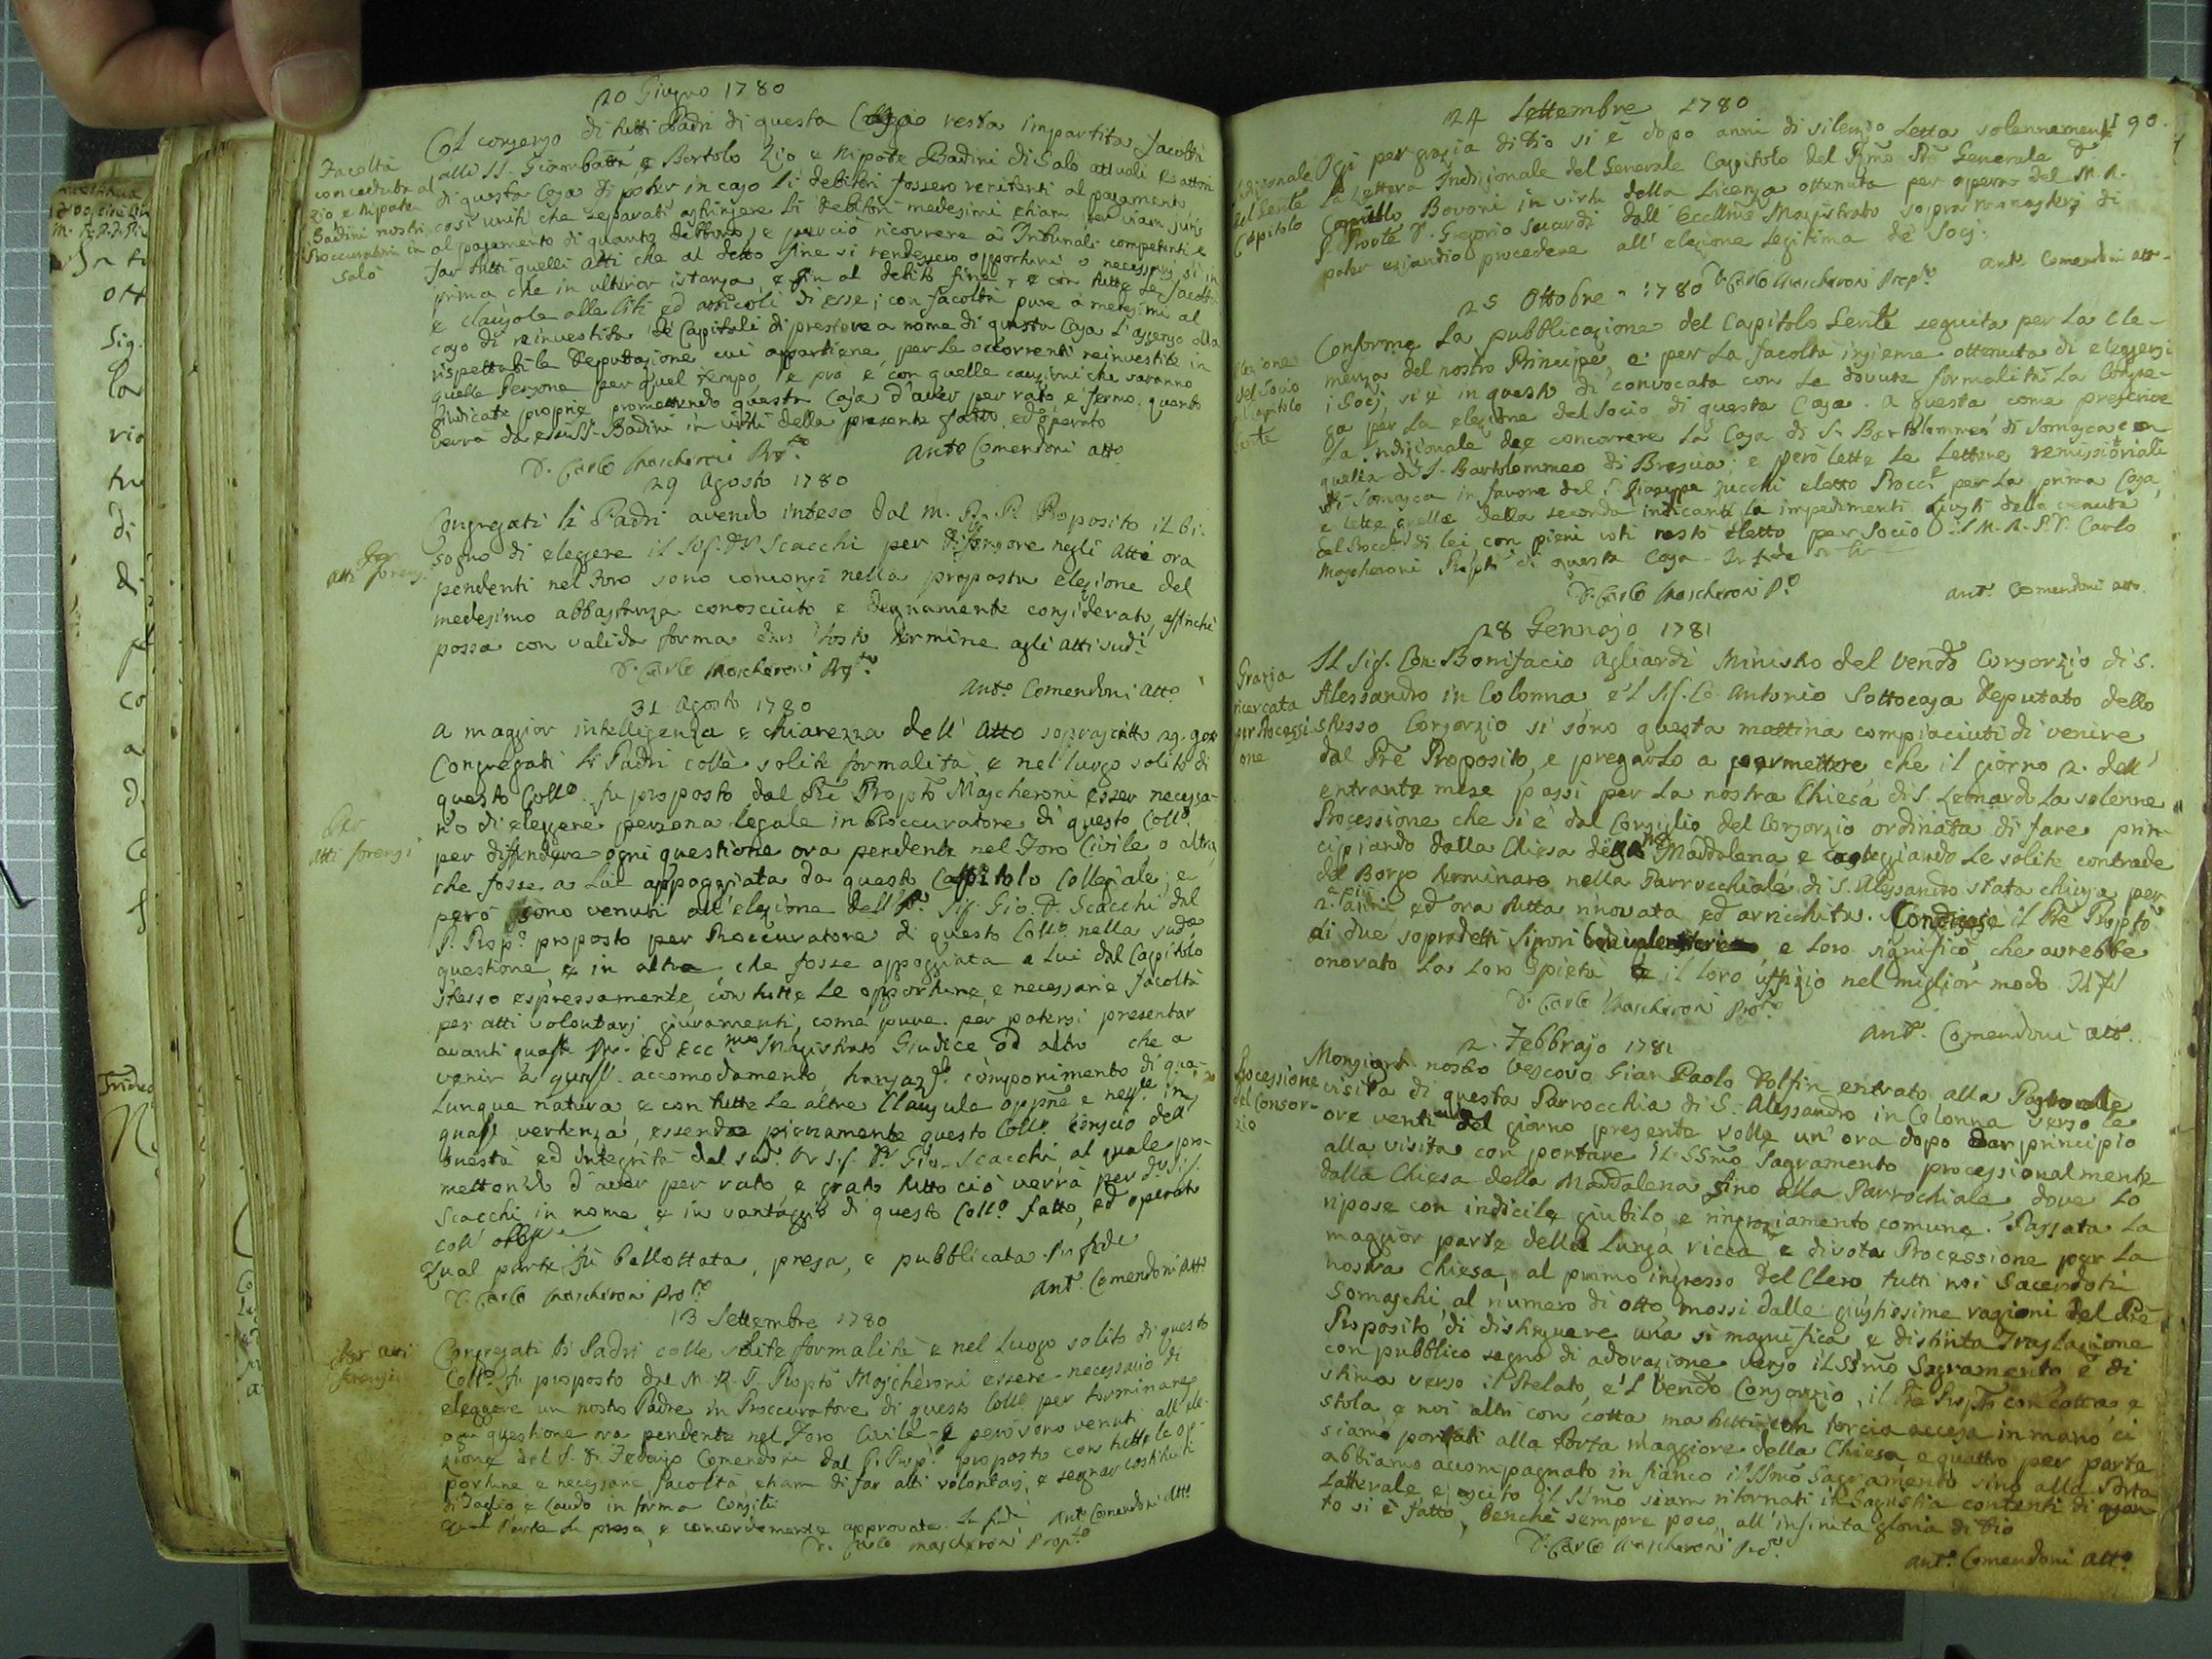 20 Giugno 1780
Facoltà
conceduta al
zio e Nipote
Badini nostri
Proccuratori in
Salò
Col consenso di tutti Padri di questo Collegio resta impartita facoltà
alli SS. Giambattā, e Bortolo Zio e Nipote Badini di Salò attuali Rattori
di questa Casa di poter in caso li debitori fossero renitenti al pagamento
così uniti che separati astringere li debitori medesimi etiam per viam juris
al pagamento di quanto debbono, e perciò ricorrere a Tribunali competenti e
far tutti quelli atti che al detto fine si rendessero opportuni o necessarj sì in
prima che in ulterior istanza, e sin al debito fine, e con tutte le facoltà
e clausole alle liti ed articoli di esse; con facoltà pure a medesimi al
caso di reinvestita de Capitali di prestare a nome di questa Casa l'assenso alla
rispettabile Deputazione cui appartiene, per le occorrenti reinvestite in
quelle Persone per quel tempo, e prò e con quelle cauzioni che saranno
giudicate proprie promettendo questa Casa d'aver per rato, e fermo quanto
verrà da essi SS. Badini in virtù della presente fatto, ed operato
D. Carlo Mascheroni Proto
Anto Comendoni atto
29 Agosto 1780
Per
atti forensi
Congregati li Padri avendo inteso dal M. R. P. Proposito il bi-
sogno di eleggere il Sig. Dr Scacchi per difensore negli Atti ora
pendenti nel Foro sono concorsi nella proposta elezione del
medesimo abbastanza conosciuto e degnamente considerato, affinchè
possa con valida forma dare tosto termine agli atti sudi
D. Carlo Mascheroni Proto
Anto Comendoni Atto
31 Agosto 1780
Per
atti forensi
A maggior intelligenza e chiarezza dell' Atto soprascritto 29. gor
Congregati li Padri colle solite formalità, e nel luogo solito di
questo Collo fu proposto dal Pre Propto Mascheroni esser necessa-
rio di eleggere persona legale in Proccuratore di questo Collo
per diffendere ogni questione ora pendente nel Foro Civile, o altra,
che fosse a lui appoggiata da questo Capitolo Collegiale, e
però sono venuti all'elezione dell' Sig. Gio. D. Scacchi dal
P. Propo proposto per Proccuratore di questo Collo nella suda
questione, e in altra che fosse appoggiata a lui dal Capitolo
stesso espressamente, con tutte le opportune, e necessarie facoltà
per atti volontarj, giuramenti, come pure per potersi presentar
avanti quals. ed Eccmo Magistrato Giudice od altro che a
venir a quals. accomodamento, transazo componimento di qua-
lunque natura, e con tutte le altre Clausule oppne e nesse in
quals vertenza, essendo pienamente questo Collo conscio dell'
onestà ed integrità del sud. Sig. Dr Gio. Scacchi, al quale pro-
mettendo d'aver per rato, e grato tutto ciò verrà per do Sig.
Scacchi in nome, e in vantaggio di questo Collo fatto, ed operato
coll'
Qual parte fù ballottata, presa, e pubblicata. In fede
D. Carlo Mascheroni Proto
Anto Comendoni Atto
13 Settembre 1780
Per atti
forensi
Congregati li Padri colle solite formalità e nel luogo solito di questo
Collo fu proposto dal M. R. P. Propto Mascheroni essere necessario di
eleggere un nostro Padre in Proccuratore di questo Collo per terminare
ogni questione ora pendente nel Foro Civile e però sono venuti all'ele-
zione del P. D. Federigo Comendoni dal P. Propo proposto con tutte le op-
portune, e necessarie facoltà, etiam di far atti volontarj, e segnar costituti
di Taglio e Laudo in forma Consilii
Qual parte fu presa, e concordemente approvata. In fede Anto Comendoni Atto
D. Carlo Mascheroni Propto
190.
24 Settembre 1780
Indizionale
del Gente
Capitolo
Ogi per grazia di Dio si è dopo anni di silenzio letta solennemente
la Lettera Indizionale del Generale Capitolo del Rmo Pre Generale D.
Camillo Bovoni in virtù della Licenza ottenuta per opera del M. R.
P. Provle D. Gregorio Suardi dall' Eccellmo Magistrato sopra monasterj di
poter eziandio procedere all'elezione legitima de Socj.
D. Carlo Mascheroni Propto
Anto Comendoni atto
25 Ottobre 1780
Elezione
del Socio
al Capitolo
Gente
Conforme la pubblicazione del Capitolo Gente seguita per la Cle-
menza del nostro Principe, e per la facoltà insieme ottenuta di eleggersi
i Socj, si è in questo dì convocata con le dovute formalità la Congre-
ga per la elezione del Socio di questa Casa. A questa come prescrive
la Indizionale dee concorrere la Casa di S. Bartolommeo di Somasca con
quella di S. Bartolommeo di Brescia; e però lette le lettere remissoriali
di Somasca in favore del P. Giuseppe Zucchi eletto Procce per la prima Casa,
e lette quelle della seconda indicanti la impedimenti giusti della venuta
del Procce di lei con pieni voti restò eletto per Socio il M. R. P. D. Carlo
Mascheroni Propto di questa Casa. In fede
D. Carlo Mascheroni Po
Anto Comendoni atto.
28 Gennajo 1781
Grazia
ricercata
per Processi-
one
Il Sig. Con. Bonifacio Agliardi Ministro del Vendo Consorzio di S.
Alessandro in Colonna, e'l Sig. Co. Antonio Sottocasa Deputato dello
stesso Consorzio si sono questa mattina compiaciuti di venire
dal Pre Proposito, e pregarlo a permettere che il giorno 2. dell'
entrante mese passi per la nostra Chiesa di S. Leonardo la solenne
Processione che si è dal Consiglio del Consorzio ordinata di fare prin-
cipiando dalla Chiesa della Maddalena e costeggiando le solite contrade
del Borgo terminare nella Parrocchiale di S. Alessandro stata chiusa per
2. anni ed ora tutta rinovata ed arricchita. Condiscese il Pre Propto
ai due sopradetti Signori, e loro significò, che avrebbe
onorato la loro pietà e il loro uffizio nel miglior modo
D. Carlo Mascheroni Proto
Anto Comendoni atto.
2. Febbrajo 1781
Processione
del Consor-
zio
Monsignr nostro Vescovo Gian Paolo Dolfin entrato alla Pastorale
visita di questa Parrocchia di S. Alessandro in Colonna verso le
ore venti del giorno presente volle un'ora dopo dar principio
alla visita con portare il SSmo Sagramento processionalmente
dalla Chiesa della Maddalena fino alla Parrochiale, dove lo
ripose con indicile giubilo e ringraziamento comune. Passata la
maggior parte della lunga ricca e divota Processione per la
nostra Chiesa, al primo ingresso del Clero tutti noi Sacerdoti
Somaschi al numero di otto mossi dalle giustissime ragioni del Pre
Proposito di distinguere una sì magnifica e distinta Traslazione
con pubblico segno di adorazione verso il SSmo Sagramento, e di
stima verso il Prelato, e'l Vendo Consorzio, il Pre Propto con cotta e
stola, e noi altri con cotta ma tutti con torcia accesa in mano ci
siamo portati alla Porta maggiore della Chiesa, e quattro per parte
abbiamo accompagnato in fianco il SSmo Sagramento sino alla Porta
Latterale, e uscito il SSmo siam ritornati in Sagristia contenti di quan-
to si è fatto, benchè sempre poco, all'infinita gloria di Dio
D. Carlo Mascheroni Proo
Anto Comendoni Atto